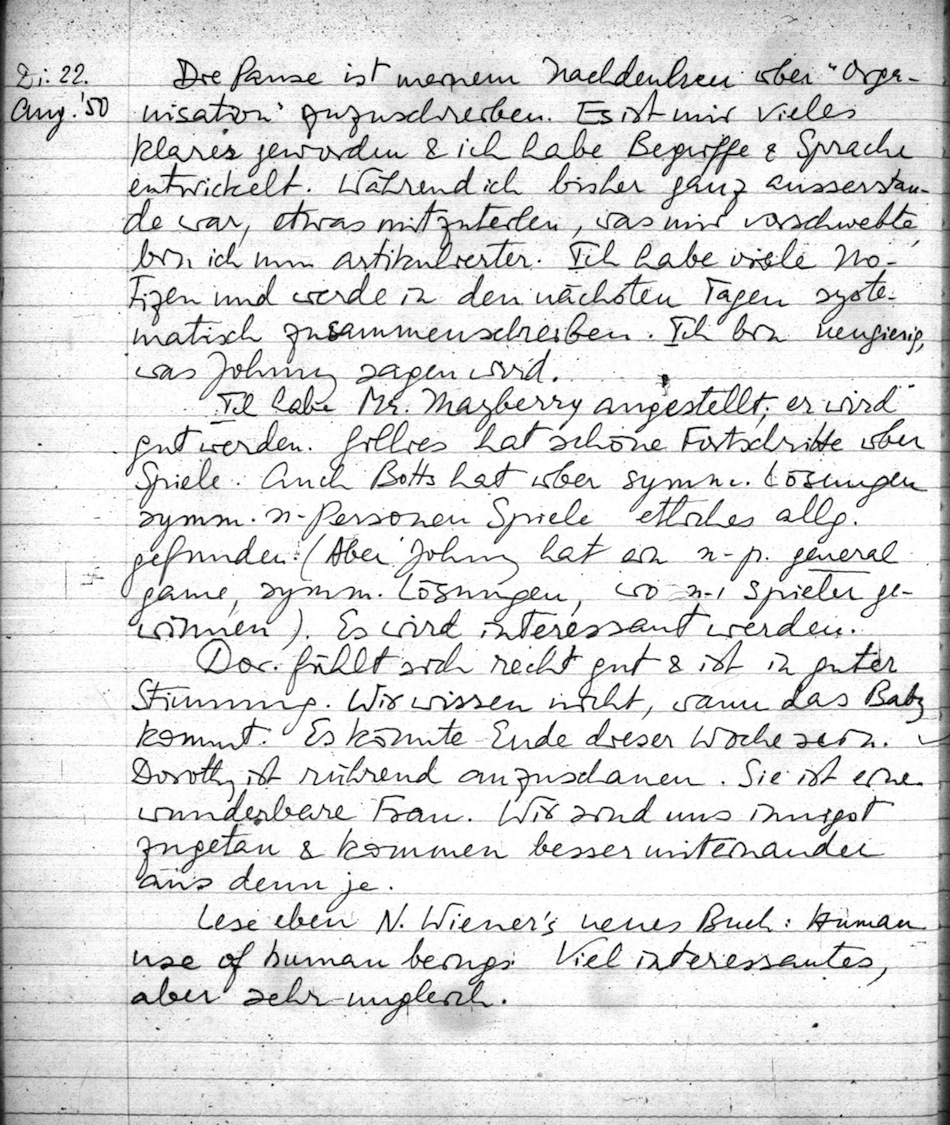 Di. 22. Die Pause ist meinem Nachdenken über "Orga-
Aug. '50 nisation" zuzuschreiben. Es ist mir vieles
klarer geworden & ich habe Begriffe & Sprache
entwickelt. Während ich bisher ganz ausserstan-
de war, etwas mitzuteilen, was mir vorschwebte,
bin ich nun artikulierter. Ich habe viele No-
tizen und werde in den nächsten Tagen syste-
matisch zusammenschreiben. Ich bin neugierig,
was Johnny sagen wird.
Ich habe Mr. Mayberry angestellt; er wird
gut werden. Gillies hat schöne Fortschritte über
Spiele. Auch Botts hat über symm. Lösungen
symm. n-Personen Spiele etliches allg.
gefunden. (Aber Johnny hat ein n-p. general
game, symm. Lösungen, wo n-1 Spieler ge-
winnen). Es wird interessant werden.
Dor. fühlt sich recht gut & ist in guter
Stimmung. Wir wissen nicht, wann das Baby
kommt. Es könnte Ende dieser Woche sein.
Dorothy ist rührend anzuschauen. Sie ist eine
wunderbare Frau. Wir sind uns innigst
zugetan & kommen besser miteinander
aus denn je.
Lese eben N. Wiener's neues Buch: Human
use of human beings. Viel interessantes,
aber sehr ungleich.